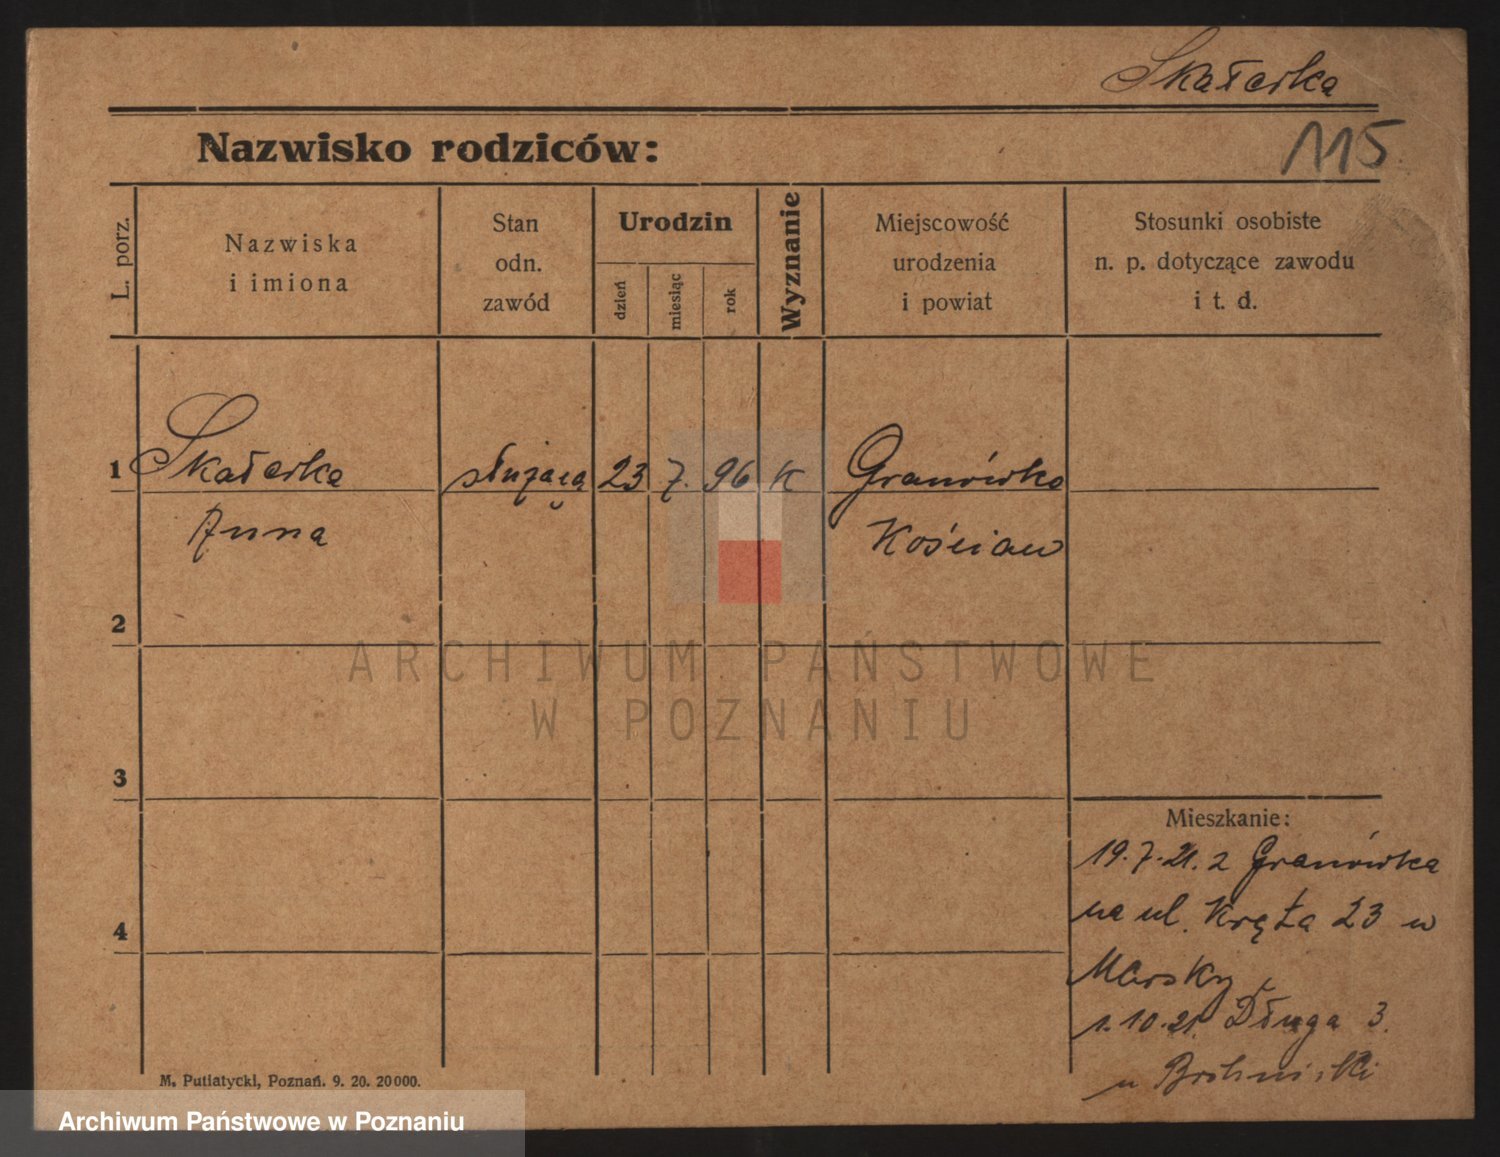 Skałecka
Nazwisko rodziców:
115
L. porz.
Nazwiska
i imiona
Stan
odn.
zawód
Urodzin
dzień
miesiąc
rok
Wyznanie
Miejscowość
urodzenia
i powiat
Stosunki osobiste
n. p. dotyczące zawodu
i t. d.
1
Skałecka służąca 23 7. 96 K Granówko
Anna Kościan
2
ARCHIWUM PAŃSTWOWE
W POZNANIU
3
Mieszkanie:
19.7.21. z Granówka
na ul. Kręta 23 u
4
1.10.21. Długa 3.
u
M. Putiatycki, Poznań. 9. 20. 20000.
Archiwum Państwowe w Poznaniu